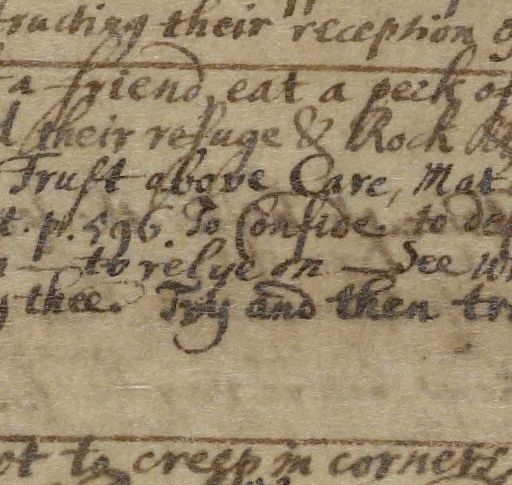 tructing their reception
a friend, eat a peck of
their refuge & Rock
Trust above Care, Mat
t. p. 596 To Confide to
to relye on — See
thee. Try and then
ot to creep in corners